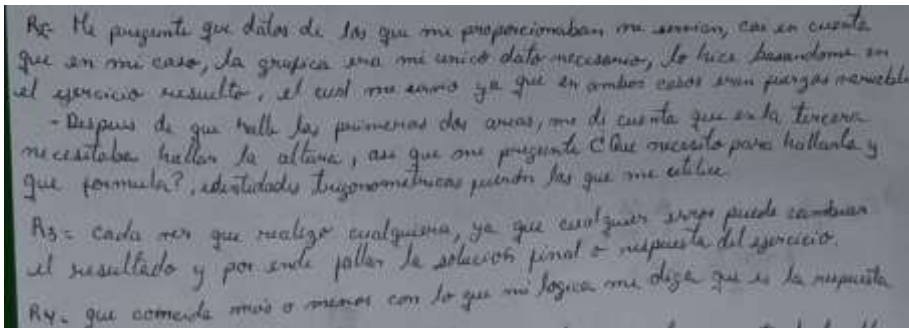 R2- Me pregunte que datos de los que me proporcionaban me servian, cai en cuenta
que en mi caso, la grafica era mi unico dato necesario, lo hice basandome en
el ejercicio resuelto, el cual me sirvio ya que en ambos casos eran fuerzas variables
- Despues de que halle las primeras dos areas, me di cuenta que en la tercera
necesitaba hallar la altura, asi que me pregunte ¿Que necesito para hallarla y
que formula?, identidades trigonometricas fueron las que me utilice.
R3= Cada vez que realizo cualquiera, ya que cualquier error puede cambiar
el resultado y por ende fallar la solucion final o respuesta del ejercicio.
R4- que coincida mas o menos con lo que mi logica me diga que es la respuesta